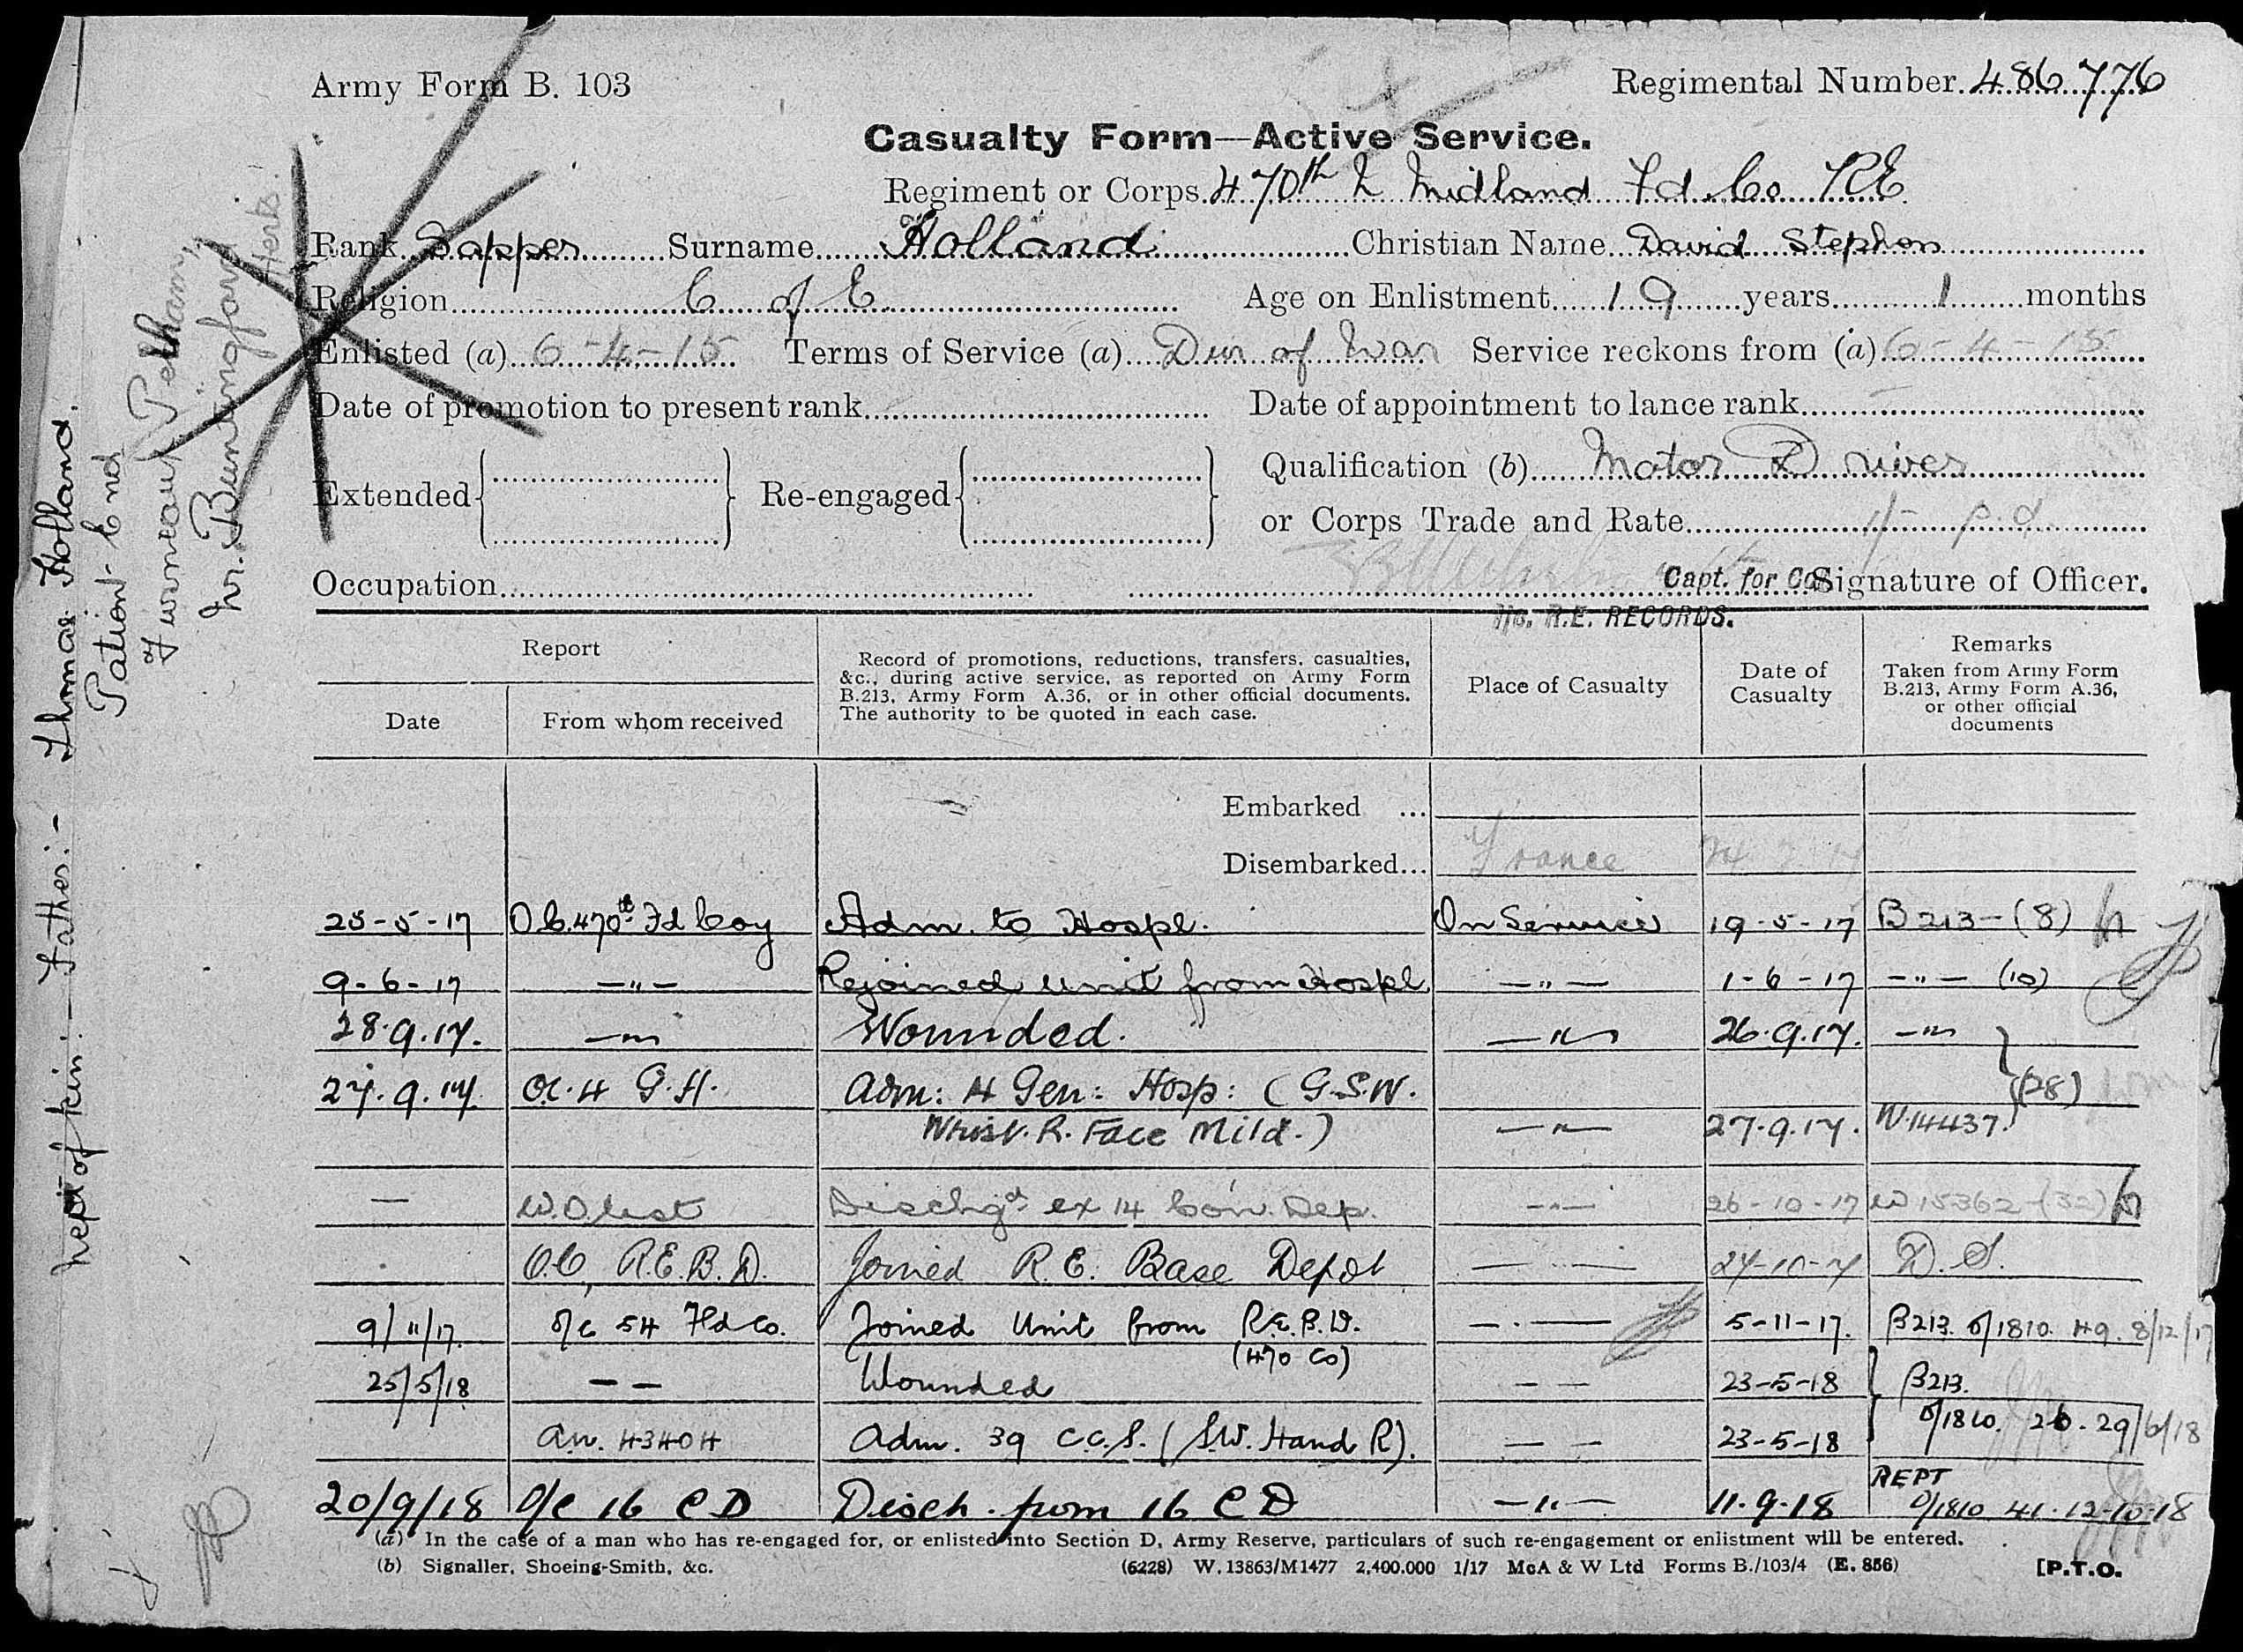 Army Form B. 103
Regimental Number 486776
Casualty Form—Active Service.
Regiment or Corps 470th N Midland Fd. Co. RE
Rank Sapper Surname Holland Christian Name David Stephen
Religion C of E Age on Enlistment 19 years 1 months
Enlisted (a) 6-4-15 Terms of Service (a) Dur of War Service reckons from (a) 6-4-15
Date of promotion to present rank Date of appointment to lance rank
Extended Re-engaged Qualification (b) Motor Driver
or Corps Trade and Rate 1/- p.d.
Occupation Capt. for Col. Signature of Officer.
i/c. R.E. RECORDS.
Next of kin:- Father:- Thomas Holland.
Patient End
Furneaux Pelham,
Nr. Buntingford
Herts.
Report
Date
From whom received
Record of promotions, reductions, transfers, casualties,
&c., during active service, as reported on Army Form
B.213, Army Form A.36, or in other official documents.
The authority to be quoted in each case.
Place of Casualty
Date of
Casualty
Remarks
Taken from Army Form
B.213, Army Form A.36,
or other official
documents
Embarked ...
Disembarked... France
25-5-17 O.C. 470th Fd Coy Adm. to Hospl. On Service 19-5-17 B 213-(8)
9-6-17 —"— Rejoined unit from Hospl —"— 1-6-17 —"— (10)
28.9.17. —"— Wounded. —"— 26.9.17. —"—
27.9.17. O.C. 4 G.H. Adm: 4 Gen: Hosp: (G.S.W. (28)
Wrist. R. Face Mild.) —"— 27.9.17. W.14437.
— W.O. List Dischgd ex 14 Con. Dep. —"— 26-10-17 W 15362-(32)
O.C. R.E.B.D. Joined R.E. Base Depot —"— 27-10-17 D.S.
9/11/17. O/C 54 Fld Co. Joined Unit from R.E.B.D. —"— 5-11-17. B213. O/1810. 49. 8/12/17
(470 Co)
25/5/18 — — Wounded — — 23-5-18 B213.
O/1810. 26. 29/6/18
an. 43404 Adm. 39 C.C.S. (S.W. Hand R). — — 23-5-18
20/9/18 O/C 16 C D Disch. from 16 C D —"— 11.9.18 REPT
O/1810 41. 12-10-18
(a) In the case of a man who has re-engaged for, or enlisted into Section D, Army Reserve, particulars of such re-engagement or enlistment will be entered.
(b) Signaller, Shoeing-Smith, &c. (6228) W. 13863/M1477 2,400,000 1/17 McA & W Ltd Forms B./103/4 (E. 856) [P.T.O.